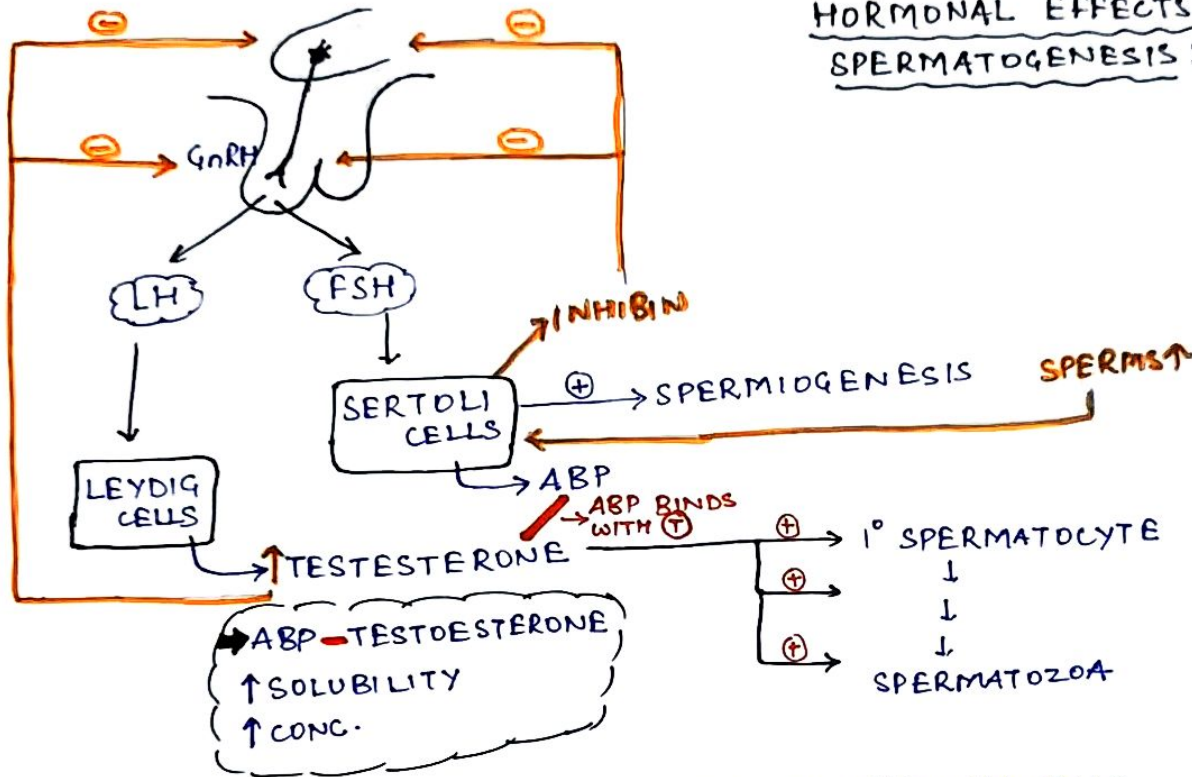 HORMONAL EFFECTS
SPERMATOGENESIS :
⊖
⊖
⊖
GnRH
⊖
LH
FSH
INHIBIN
SERTOLI
CELLS
⊕
SPERMIOGENESIS
SPERMS↑
LEYDIG
CELLS
ABP
→ABP BINDS
WITH Ⓣ
↑TESTESTERONE
⊕
1° SPERMATOCYTE
⊕
⊕
SPERMATOZOA
➡ABP-TESTOESTERONE
↑SOLUBILITY
↑CONC.